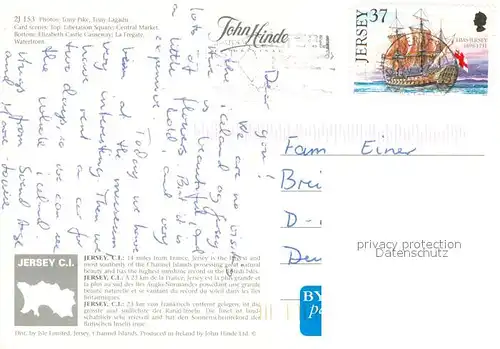 2J 153 Photos: Tony Pike, Tony Tagashi.
Card scenes: Top: Liberation Square; Central Market.
Bottom: Elizabeth Castle Causeway; La Fregate,
Watertown.
John Hinde
JERSEY
37
HMS JERSEY
Dear you!
We are now visiting
the island of Jersey
here is beautiful and
lots of flowers. But it is
a little cold, and very
expensive. Today we have
been at the museum
very interesting. Then we
have rent a car for
two days, so we can see
the whole island
things from Svend Aage
and
Fam Einer
Brei
D-
Deu
privacy protection
Datenschutz
BY
pa
JERSEY C.I.
JERSEY, C.I.: 14 miles from France, Jersey is the largest and
most southerly of the Channel Islands possessing great natural
beauty and has the highest sunshine record in the British Isles.
JERSEY, C.I.: A 23 km de la France, Jersey est la plus grande et
la plus au sud des Iles Anglo-Normandes possédant une grande
beauté naturelle et se vantant du record du soleil dans les Iles
britanniques.
JERSEY, C.I.: 23 km von Frankreich entfernt gelegen, ist die
grösste und südlichste der Kanal-Inseln. Die Insel ist land-
schaftlich sehr reizvoll und hat den Sonnenscheinrekord der
Britischen Inseln inne.
Dist. by Isle Limited, Jersey, Channel Islands. Produced in Ireland by John Hinde Ltd. ©